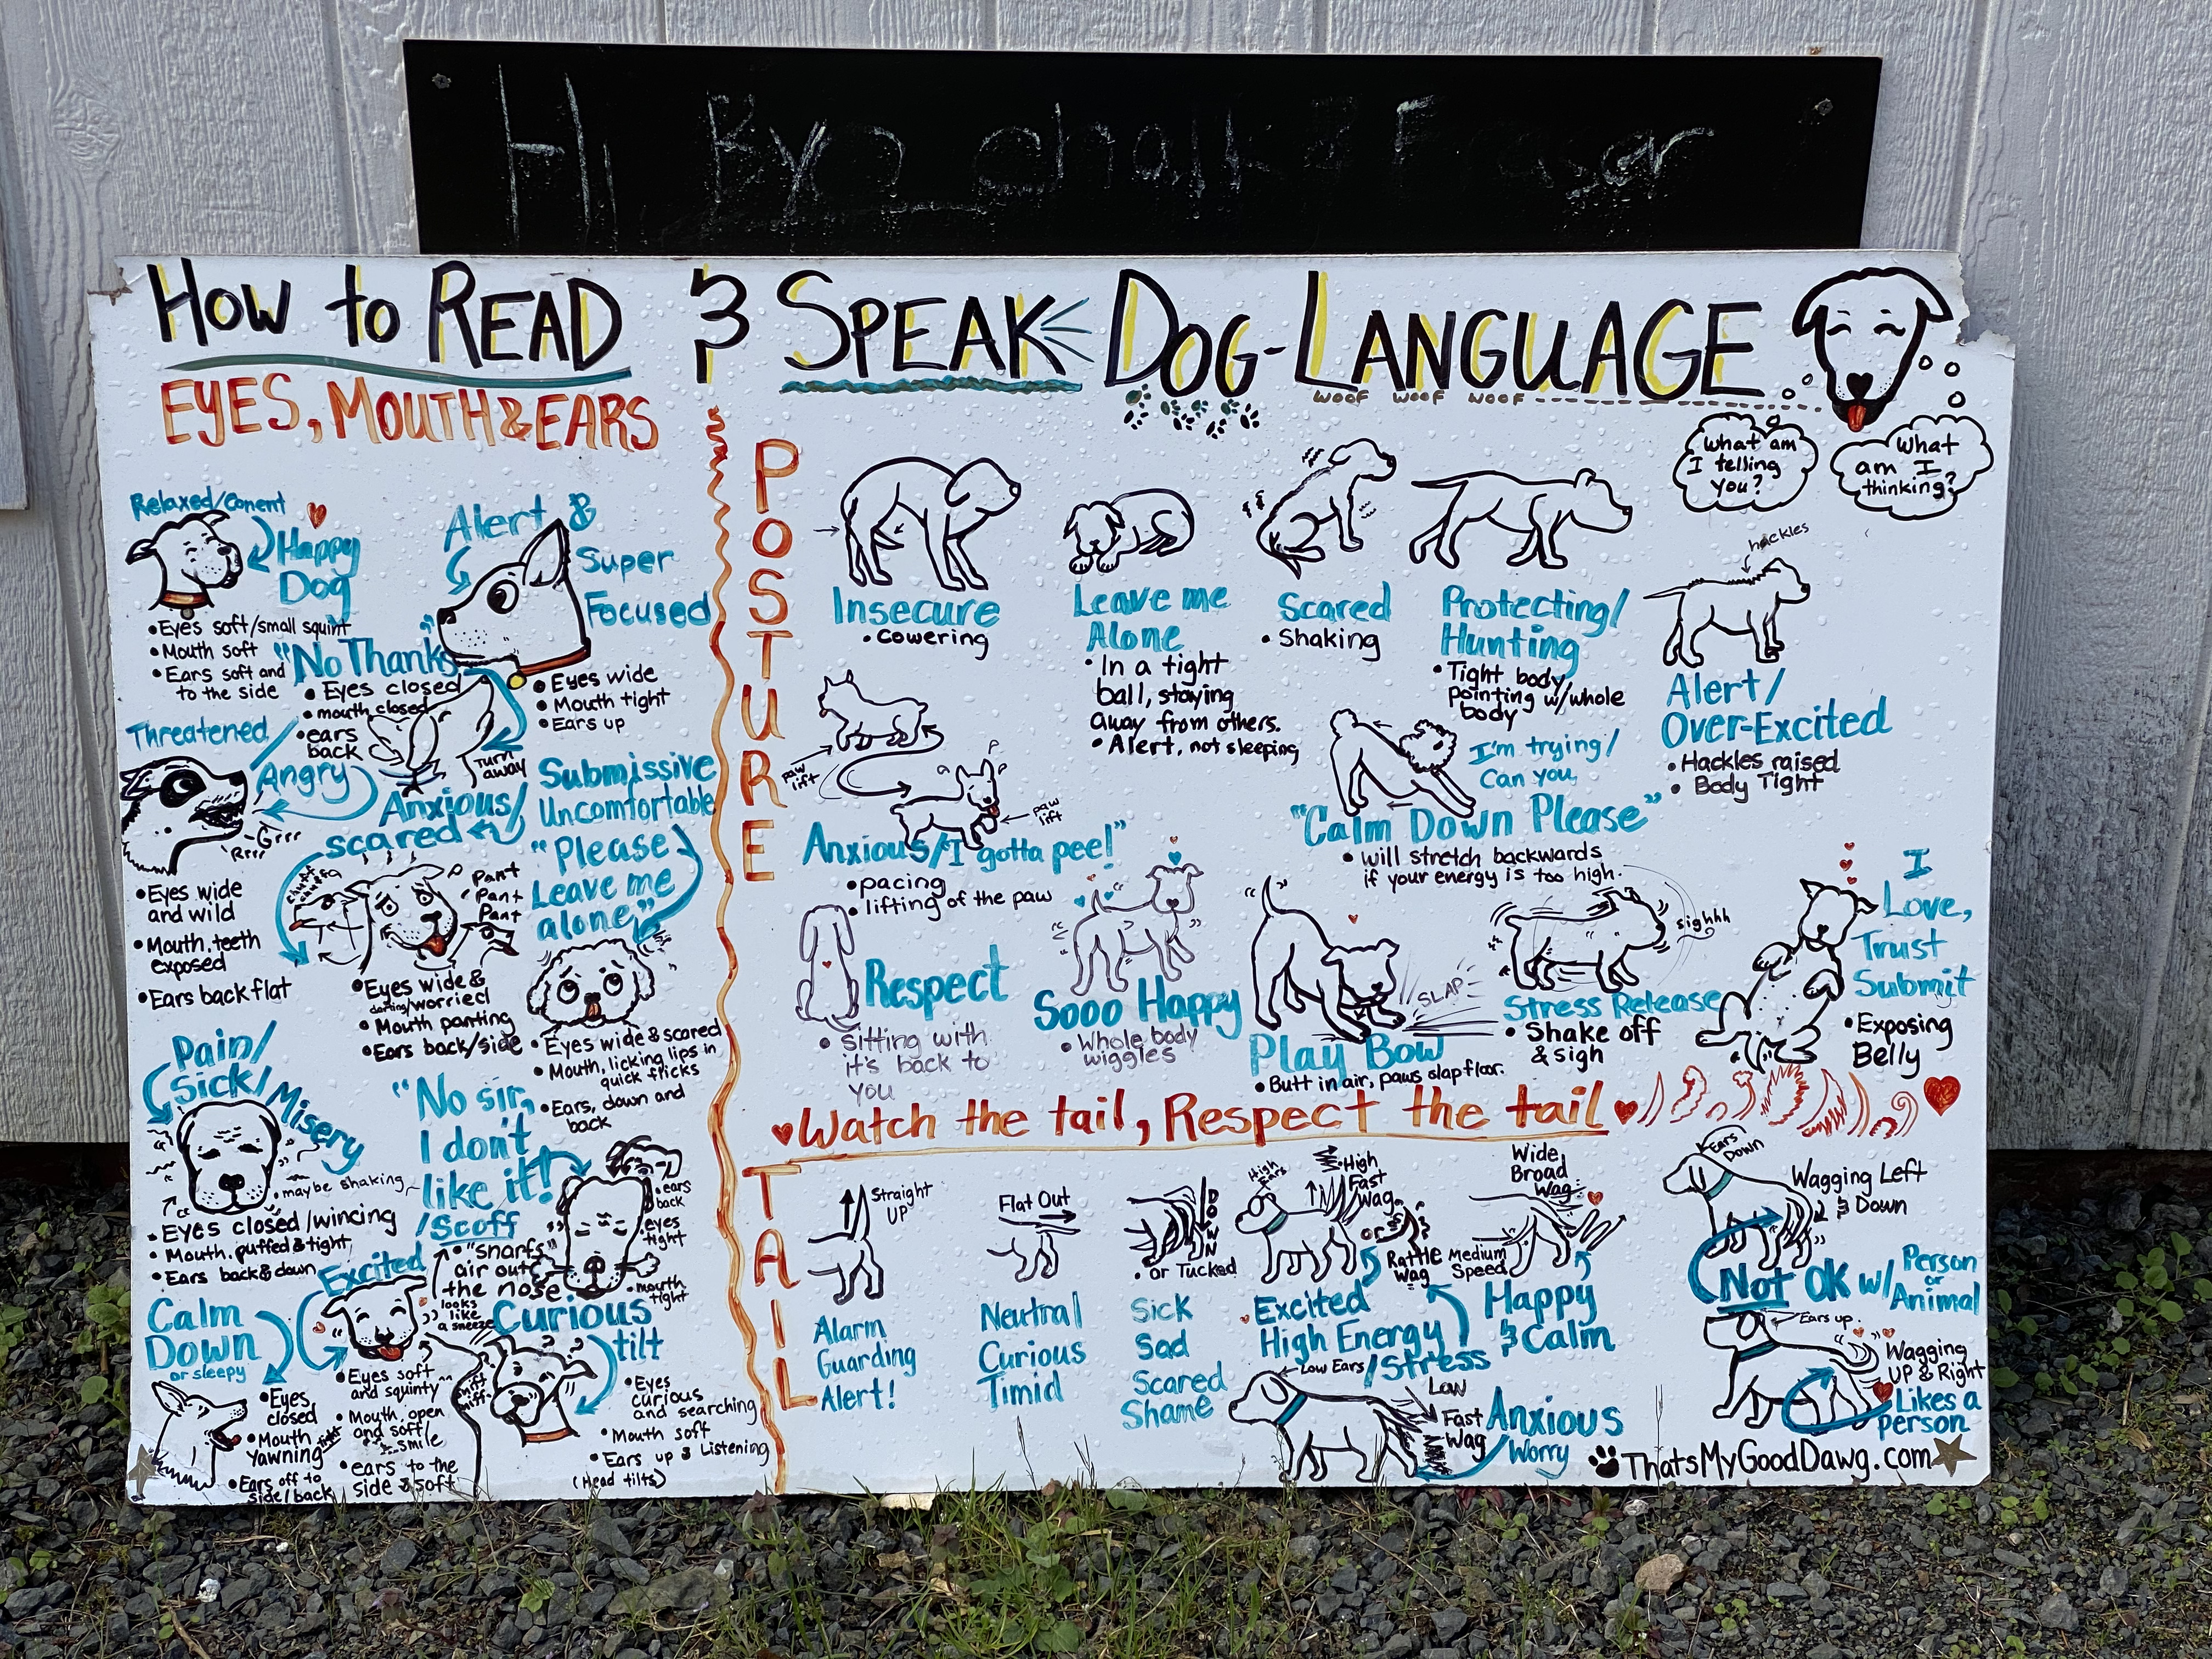 Hi, Bye chalk & Eraser
How to READ & SPEAK DOG-LANGUAGE
WOOF WOOF WOOF
What am
I telling
you?
What
am I
thinking?
EYES, MOUTH & EARS
Relaxed/Conent
Happy
Dog
• Eyes soft/small squint
• Mouth soft
• Ears soft and
to the side
Alert &
Super
Focused
• Eyes wide
• Mouth tight
• Ears up
"No Thanks"
• Eyes closed
• mouth closed
• ears
back
Turn
away
Threatened/
Angry
Grrr
Rrrr
• Eyes wide
and wild
• Mouth, teeth
exposed
• Ears back flat
Anxious/
scared
Pant
Pant
Pant
• Eyes wide &
darting/worried
• Mouth panting
• Ears back/side
Submissive
Uncomfortable
"Please
Leave me
alone"
• Eyes wide & scared
• Mouth, licking lips in
quick flicks
• Ears, down and
back
Pain/
Sick/Misery
• maybe shaking
• Eyes closed/wincing
• Mouth, puffed & tight
• Ears back & down
"No sir,
I don't
like it!"
/Scoff
• "snarfs"
air out
the nose
looks
like
a sneeze
• ears
back
• eyes
tight
• mouth
tight
Calm
Down
or sleepy
• Eyes
closed
• Mouth
yawning
• Ears off to
side/back
Excited
• Eyes soft
and squinty
• Mouth, open
and soft/
smile
• ears to the
side & soft
Curious
tilt
• Eyes
curious
and searching
• Mouth soft
• Ears up & Listening
(Head tilts)
POSTURE
Insecure
• Cowering
Leave me
Alone
• In a tight
ball, staying
away from others.
• Alert, not sleeping
Scared
• Shaking
Protecting/
Hunting
• Tight body
pointing w/whole
body
hackles
Alert/
Over-Excited
• Hackles raised
• Body Tight
paw
lift
paw
lift
Anxious/I gotta pee!"
• pacing
• lifting of the paw
I'm trying/
Can you,
"Calm Down Please"
• will stretch backwards
if your energy is too high.
Respect
• Sitting with
it's back to
you
Sooo Happy
• Whole body
wiggles
SLAP
Play Bow
• Butt in air, paws slap floor.
sighhh
Stress Release
• Shake off
& sigh
I
Love,
Trust
Submit
• Exposing
Belly
Watch the tail, Respect the tail
TAIL
Straight
UP
Alarm
Guarding
Alert!
Flat Out
Neutral
Curious
Timid
DOWN
• or Tucked
Sick
Sad
Scared
Shame
High
Ears
High
Fast
Wag
or
Rattle
Wag
Excited
High Energy
/Stress
Wide
Broad
Wag
Medium
Speed
Happy
& Calm
Low Ears
Low
Fast
Wag
Anxious
Worry
Ears
Down
Wagging Left
& Down
Not OK w/ Person
or
Animal
Ears up
Wagging
UP & Right
Likes a
person
ThatsMyGoodDawg.com